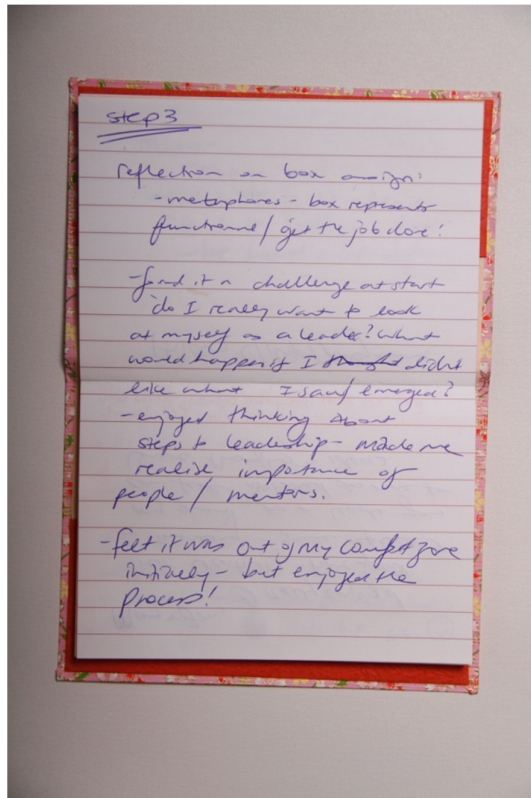 step 3
reflection on box assign:
- metaphores - box represents
functional / get the job done!
- found it a challenge at start
'do I really want to look
at myself as a leader? What
would happen if I thought didnt
like what I saw / emerged?
- enjoyed thinking About
steps to leadership - made me
realise importance of
people / mentors.
- felt it was out of my comfort zone
initially - but enjoyed the
process!